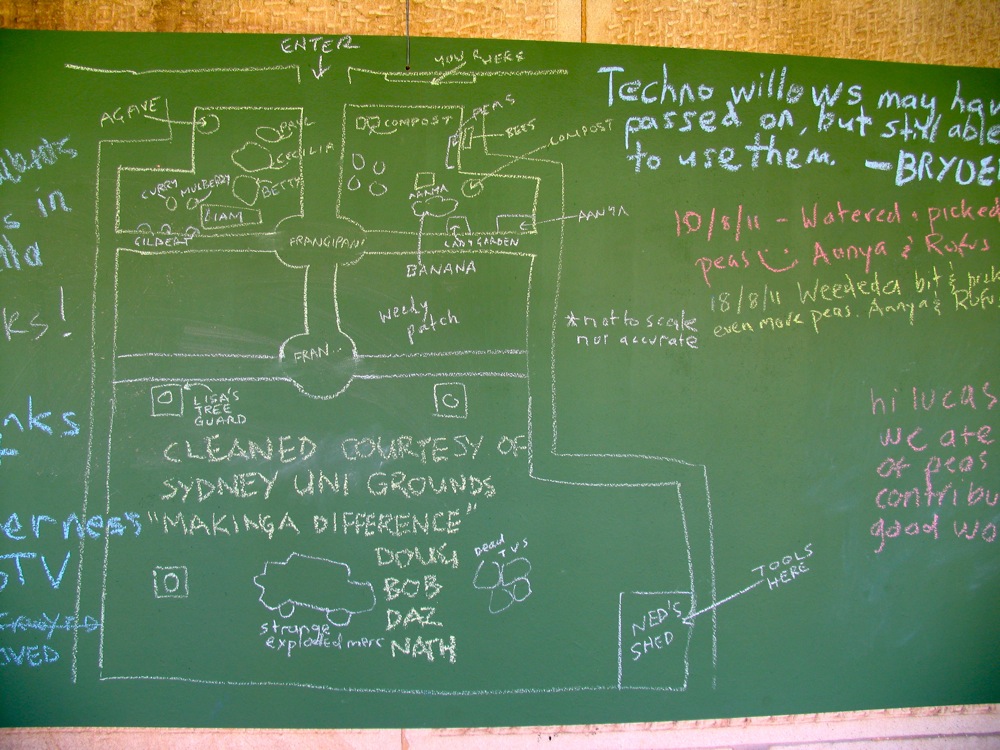 ENTER
YOU R HERE
AGAVE
PAUL
CECILIA
BETTY
CURRY
MULBERRY
LIAM
GILBERT
COMPOST
PEAS
BEES
COMPOST
AANYA
AANYA
LADY GARDEN
FRANGIPANI
BANANA
weedy
patch
*not to scale
not accurate
FRAN..
LISA'S
TREE
GUARD
CLEANED COURTESY OF
SYDNEY UNI GROUNDS
"MAKING A DIFFERENCE"
DOUG
BOB
DAZ
NATH
Dead
TV's
strange
exploded merc
NED'S
SHED
TOOLS
HERE
Techno willows may hav
passed on, but still able
to use them. —BRYDE
10/8/11 - Watered + picked
peas Aanya & Rufus
18/8/11 Weededa bit &
even more peas. Aanya & Rufus
hi lucas
we ate
of peas
contribu
good wo
s in
ks!
nks
erness
TV
OVED